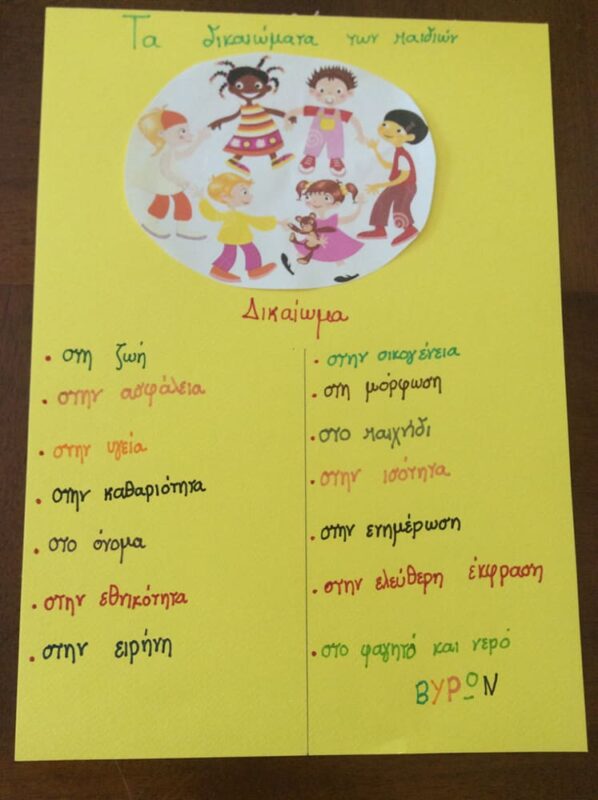 Τα δικαιώματα των παιδιών
Δικαίωμα
• στη ζωή
• στην ασφάλεια
• στην υγεία
• στην καθαριότητα
• στο όνομα
• στην εθνικότητα
• στην ειρήνη
• στην οικογένεια
• στη μόρφωση
• στο παιχνίδι
• στην ισότητα
• στην ενημέρωση
• στην ελεύθερη έκφραση
• στο φαγητό και νερό
ΒΥΡΟΝ